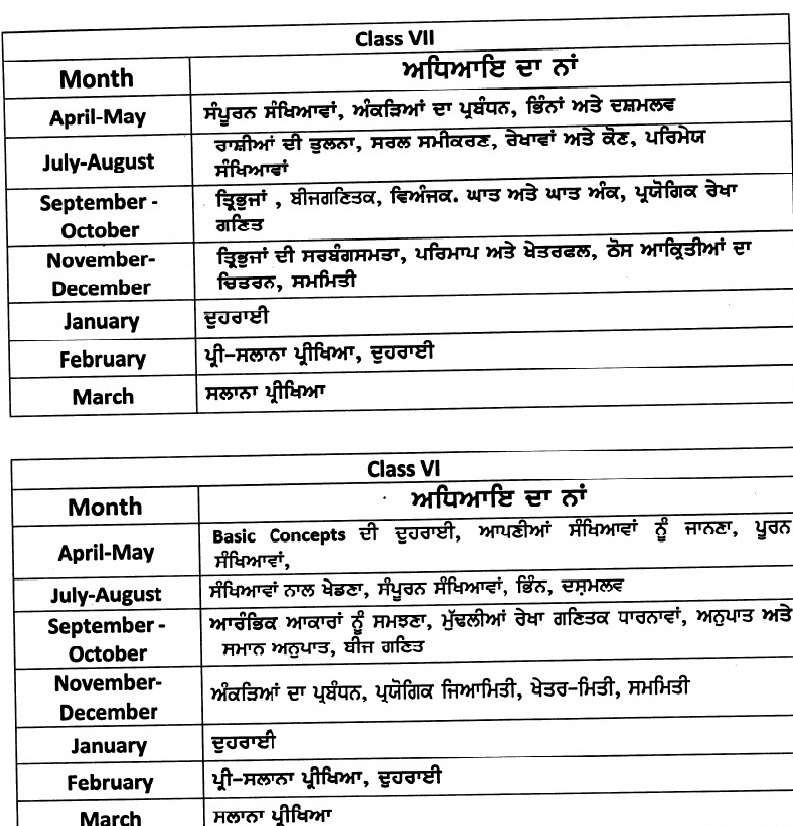 Class VII
Month ਅਧਿਆਇ ਦਾ ਨਾਂ
April-May ਸੰਪੂਰਨ ਸੰਖਿਆਵਾਂ, ਅੰਕੜਿਆਂ ਦਾ ਪ੍ਰਬੰਧਨ, ਭਿੰਨਾਂ ਅਤੇ ਦਸ਼ਮਲਵ
July-August ਰਾਸ਼ੀਆਂ ਦੀ ਤੁਲਨਾ, ਸਰਲ ਸਮੀਕਰਣ, ਰੇਖਾਵਾਂ ਅਤੇ ਕੋਣ, ਪਰਿਮੇਯ
ਸੰਖਿਆਵਾਂ
September - ਤ੍ਰਿਭੁਜਾਂ , ਬੀਜਗਣਿਤਕ, ਵਿਅੰਜਕ. ਘਾਤ ਅਤੇ ਘਾਤ ਅੰਕ, ਪ੍ਰਯੋਗਿਕ ਰੇਖਾ
October ਗਣਿਤ
November- ਤ੍ਰਿਭੁਜਾਂ ਦੀ ਸਰਬੰਗਸਮਤਾ, ਪਰਿਮਾਪ ਅਤੇ ਖੇਤਰਫਲ, ਠੋਸ ਆਕ੍ਰਿਤੀਆਂ ਦਾ
December ਚਿਤਰਨ, ਸਮਮਿਤੀ
January ਦੁਹਰਾਈ
February ਪ੍ਰੀ–ਸਲਾਨਾ ਪ੍ਰੀਖਿਆ, ਦੁਹਰਾਈ
March ਸਲਾਨਾ ਪ੍ਰੀਖਿਆ
Class VI
Month ਅਧਿਆਇ ਦਾ ਨਾਂ
April-May Basic Concepts ਦੀ ਦੁਹਰਾਈ, ਆਪਣੀਆਂ ਸੰਖਿਆਵਾਂ ਨੂੰ ਜਾਨਣਾ, ਪੂਰਨ
ਸੰਖਿਆਵਾਂ,
July-August ਸੰਖਿਆਵਾਂ ਨਾਲ ਖੇਡਣਾ, ਸੰਪੂਰਨ ਸੰਖਿਆਵਾਂ, ਭਿੰਨ, ਦਸ਼ਮਲਵ
September - ਆਰੰਭਿਕ ਆਕਾਰਾਂ ਨੂੰ ਸਮਝਣਾ, ਮੁੱਢਲੀਆਂ ਰੇਖਾ ਗਣਿਤਕ ਧਾਰਨਾਵਾਂ, ਅਨੁਪਾਤ ਅਤੇ
October ਸਮਾਨ ਅਨੁਪਾਤ, ਬੀਜ ਗਣਿਤ
November-
December ਅੰਕੜਿਆਂ ਦਾ ਪ੍ਰਬੰਧਨ, ਪ੍ਰਯੋਗਿਕ ਜਿਆਮਿਤੀ, ਖੇਤਰ-ਮਿਤੀ, ਸਮਮਿਤੀ
January ਦੁਹਰਾਈ
February ਪ੍ਰੀ–ਸਲਾਨਾ ਪ੍ਰੀਖਿਆ, ਦੁਹਰਾਈ
March ਸਲਾਨਾ ਪ੍ਰੀਖਿਆ